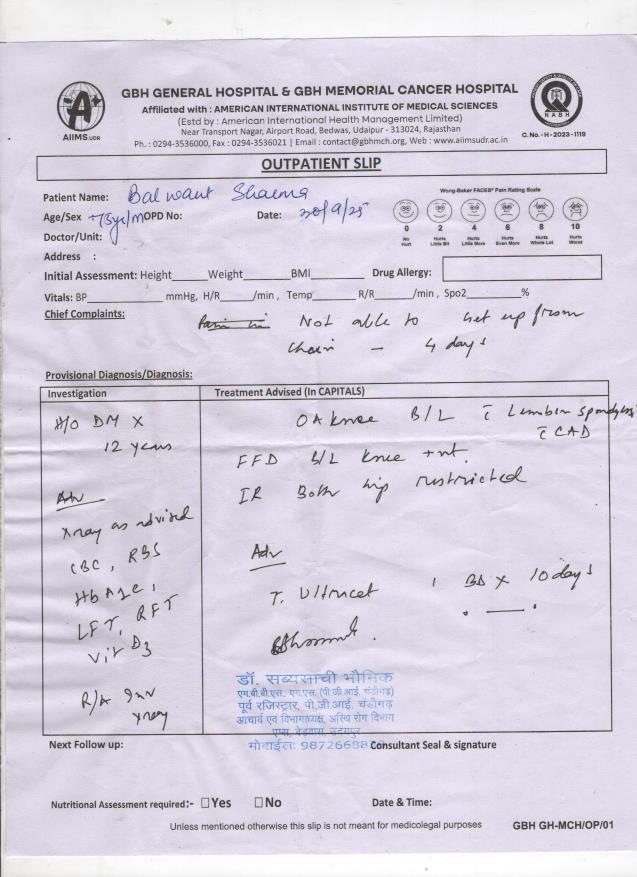 AIIMS.UDR
GBH GENERAL HOSPITAL & GBH MEMORIAL CANCER HOSPITAL
Affiliated with : AMERICAN INTERNATIONAL INSTITUTE OF MEDICAL SCIENCES
(Estd by : American International Health Management Limited)
Near Transport Nagar, Airport Road, Bedwas, Udaipur - 313024, Rajasthan
Ph. : 0294-3536000, Fax : 0294-3536021 | Email : contact@gbhmch.org, Web : www.aiimsudr.ac.in
NABH
C.No.-H-2023-1119
OUTPATIENT SLIP
Patient Name: Balwant Sharma
Age/Sex 75yr/M OPD No: Date: 20/9/25
Doctor/Unit:
Address :
Wong-Baker FACES® Pain Rating Scale
0 2 4 6 8 10
No Hurt Hurts Little Bit Hurts Little More Hurts Even More Hurts Whole Lot Hurts Worst
Initial Assessment: Height Weight BMI Drug Allergy:
Vitals: BP mmHg, H/R /min , Temp R/R /min , Spo2 %
Chief Complaints: Not able to get up from
chair - 4 days
Provisional Diagnosis/Diagnosis:
Investigation
H/O DM X
12 years
Adv
Xray as advised
CBC, RBS
HbA1c,
LFT, RFT
Vit D3
R/A
xray
Treatment Advised (In CAPITALS)
OA knee B/L c Lumbar
c CAD
FFD B/L knee +nt.
IR Both hip restricted
Adv
T. Ultracet 1 BD X 10 days
डॉ. सब्यसाची भौमिक
एम.बी.बी.एस., एम.एस. (पी.जी.आई. चंडीगढ़)
पूर्व रजिस्ट्रार, पी.जी.आई. चंडीगढ़
आचार्य एवं विभागाध्यक्ष, अस्थि रोग विभाग
एम्स, बेड़वास, उदयपुर
मोबाईल: 9872668
Next Follow up: Consultant Seal & signature
Nutritional Assessment required:- Yes No Date & Time:
Unless mentioned otherwise this slip is not meant for medicolegal purposes GBH GH-MCH/OP/01